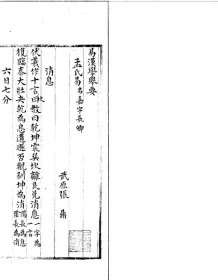 易漢學舉要
孟氏易名喜字長卿
武原張鼎
消息
伏羲作十言之教曰乾坤震巽坎離艮兌消息一字為一言
復臨泰大壯夬乾為息遘遯否觀剝坤為消陽長為息陰長為消
六日七分